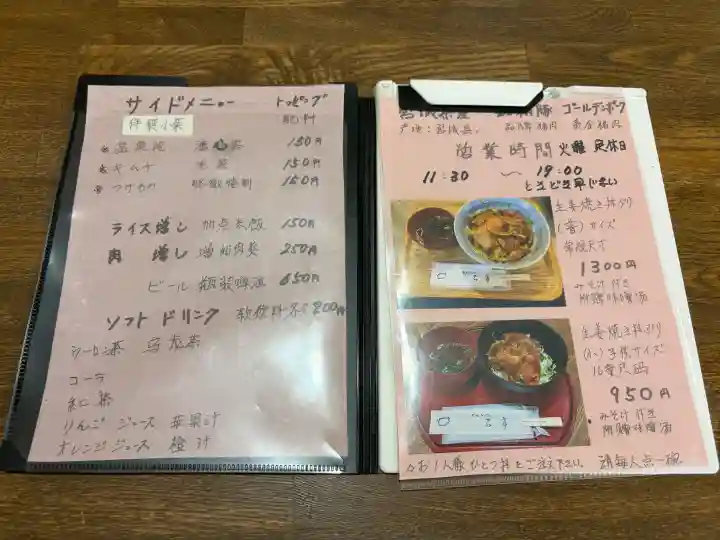 サイドメニュー
トッピング
配料
伴餐小菜
温泉卵
150円
キムチ
150円
150円
ライス増し 加点米飯 150円
肉 増し 増加肉量 250円
ビール 瓶装啤酒 650円
ソフト ドリンク 軟飲料 各200円
ウーロン茶 乌龙茶
コーラ
紅茶
りんご ジュース 苹果汁
オレンジジュース 橙汁
豚 ゴールデンポーク
営業時間 火曜 定休日
11:30 〜 19:00
ときどき早じまい
生姜焼き丼ぶり
(普)サイズ
常规尺寸
1300円
みそ汁 付き
附赠味噌汤
生姜焼き丼ぶり
(小)子供サイズ
儿童尺码
950円
みそ汁 付き
附赠味噌汤
お1人様 ひとつ丼をご注文下さい。 请每人点一碗